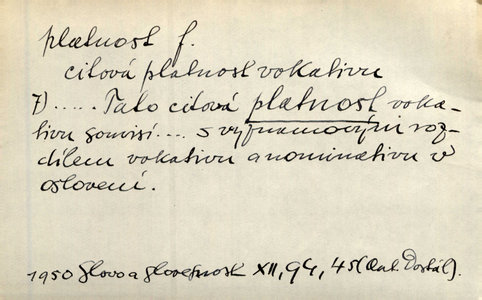 platnost f.
citová platnost vokativu
7) ..... Tato citová platnost voka-
tivu souvisí.... s významovým roz-
dílem vokativu a nominativu v
oslovení.
1950 Slovo a slovesnost XII, 94, 45 (Ant. Dostál).